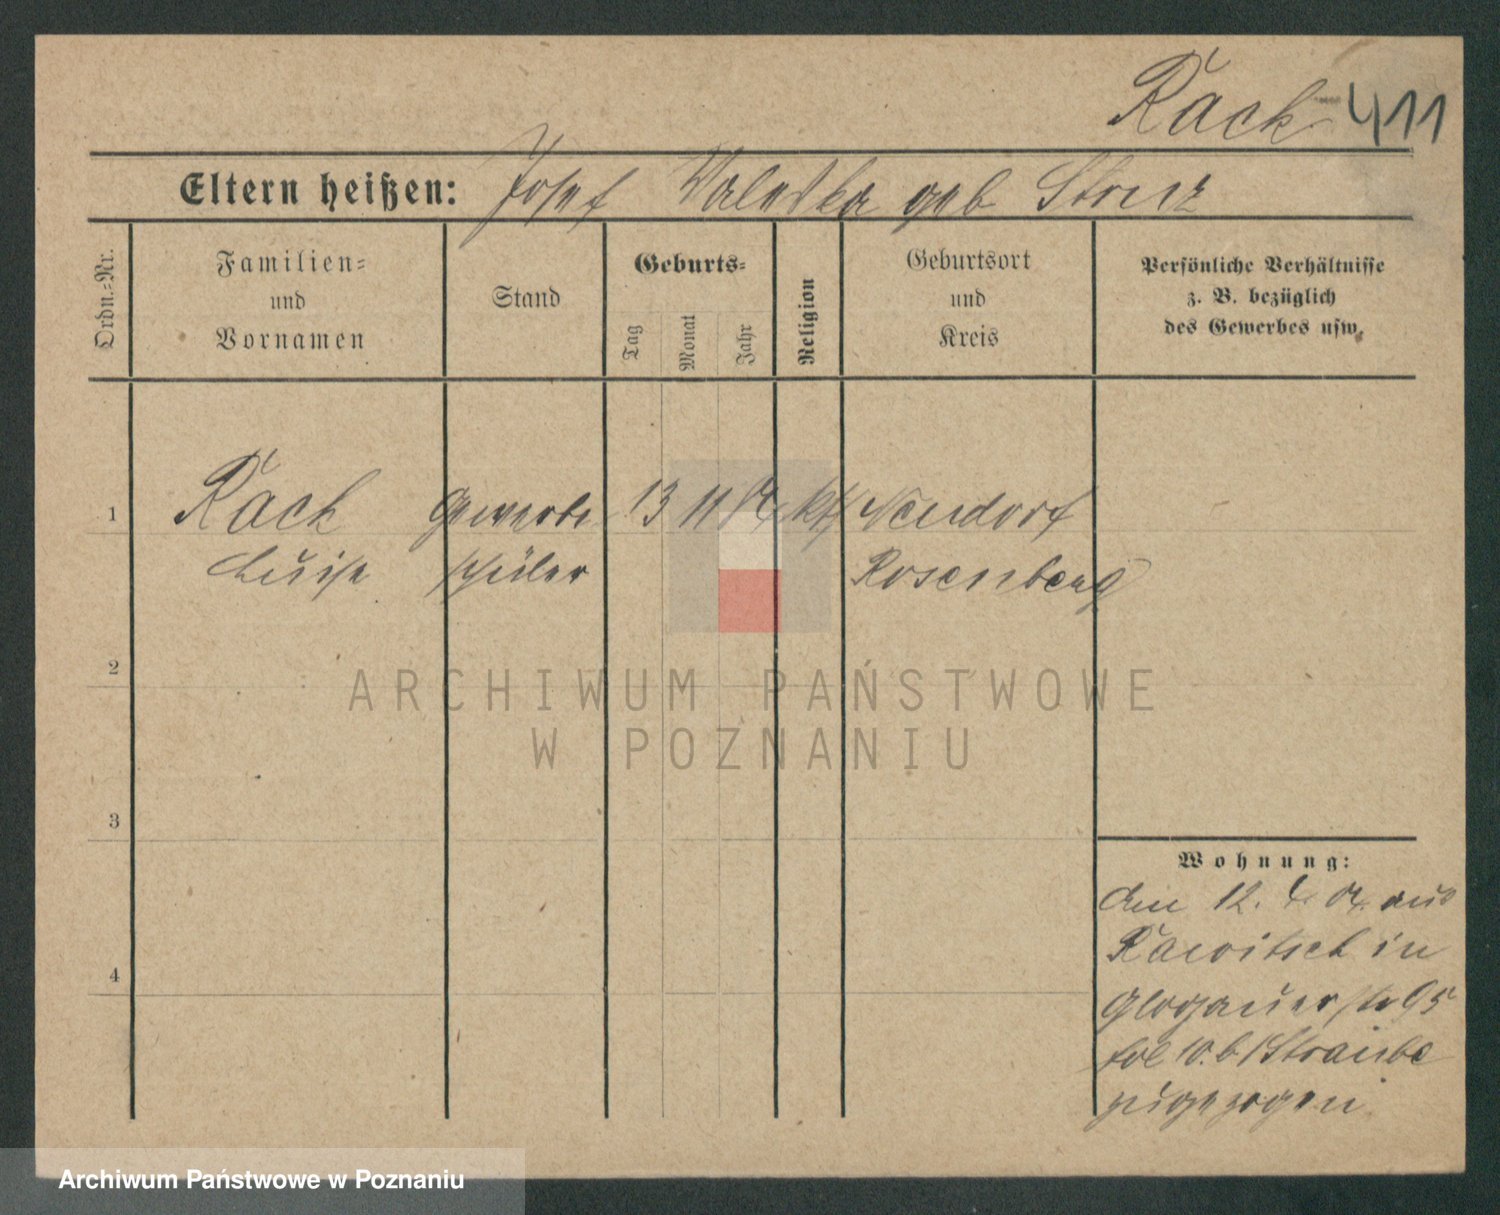 Rack 411
Eltern heißen: Josef Valeska geb Struz
Ordn.=Nr.
Familien=
und
Vornamen
Stand
Geburts=
Tag
Monat
Jahr
Religion
Geburtsort
und
Kreis
Persönliche Verhältnisse
z. B. bezüglich
des Gewerbes usw.
1 Rack Gewerbe 13 11 kth Neudorf
Luise schüler Rosenberg
2
3
4
ARCHIWUM PAŃSTWOWE
W POZNANIU
Wohnung:
den 12. aus
Rawitsch in
Glogauerstr 95
bei Straube
zugezogen
Archiwum Państwowe w Poznaniu